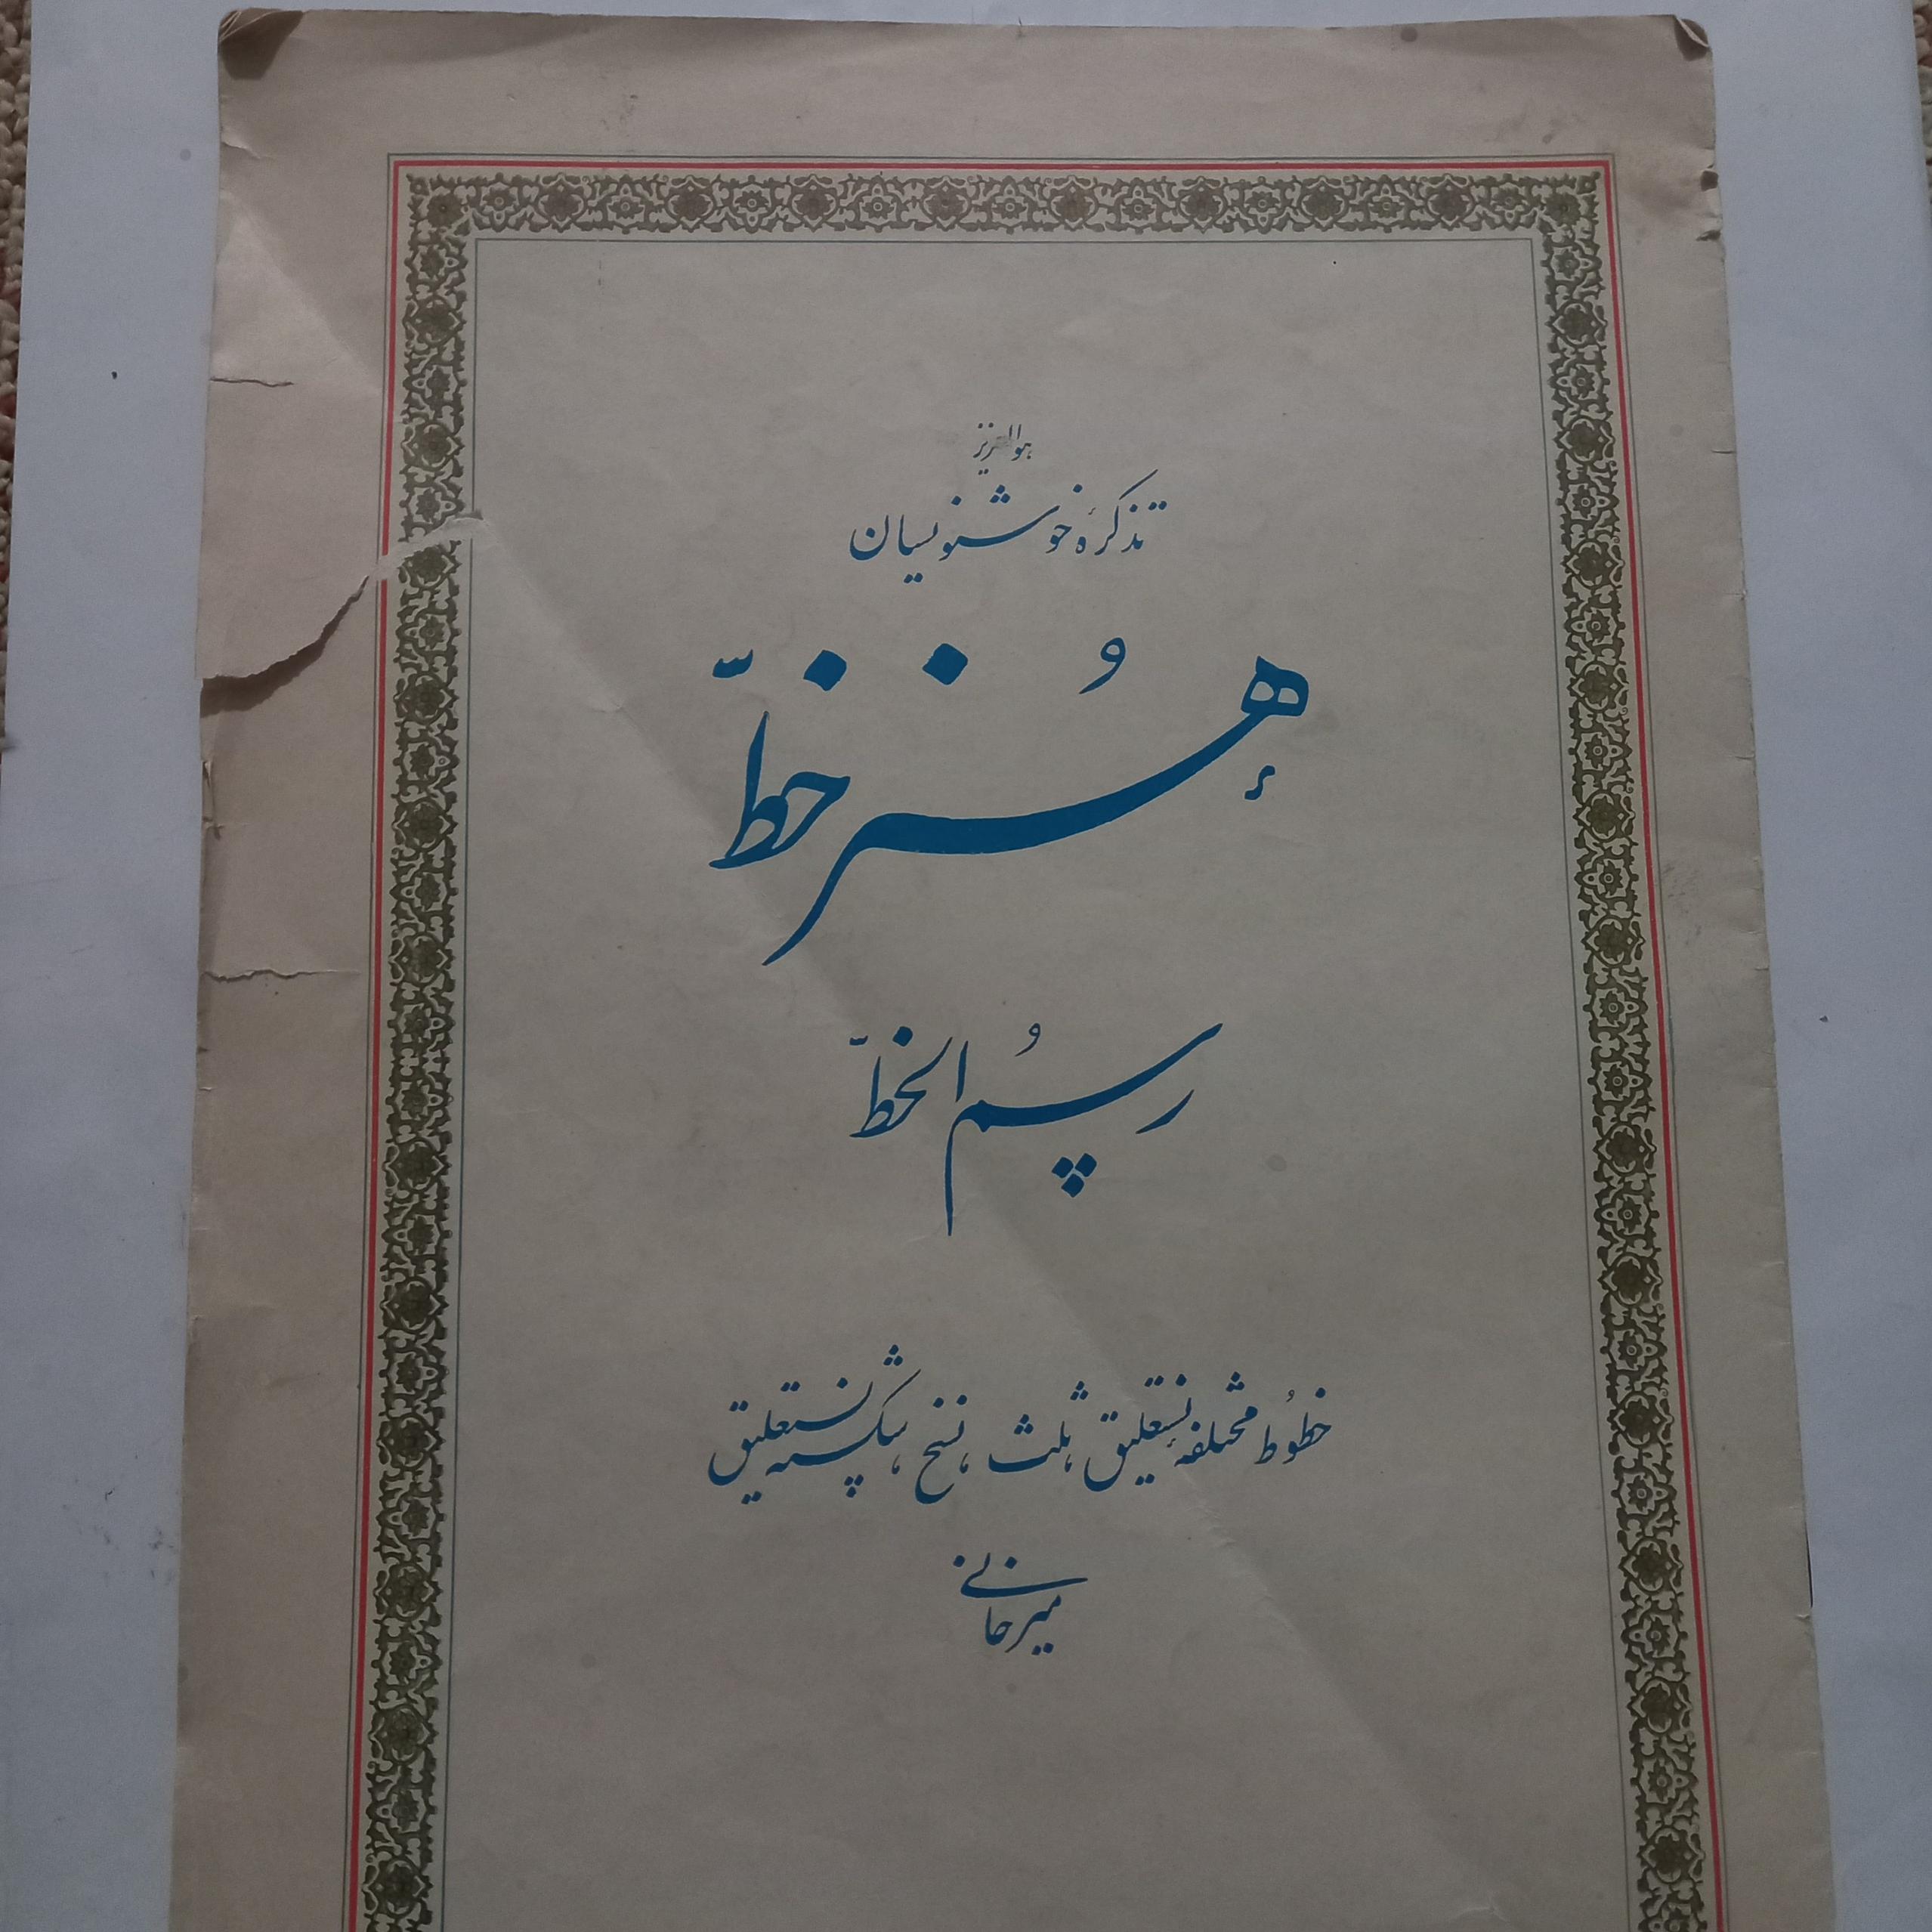 هوالعزیز
تذکرهٔ خوشنویسان
هُنر خطّ
رسمُ الخطّ
خطوُط مختلفهٔ نستعلیق، ثلث، نسخ، شکسته نستعلیق
میرخانی